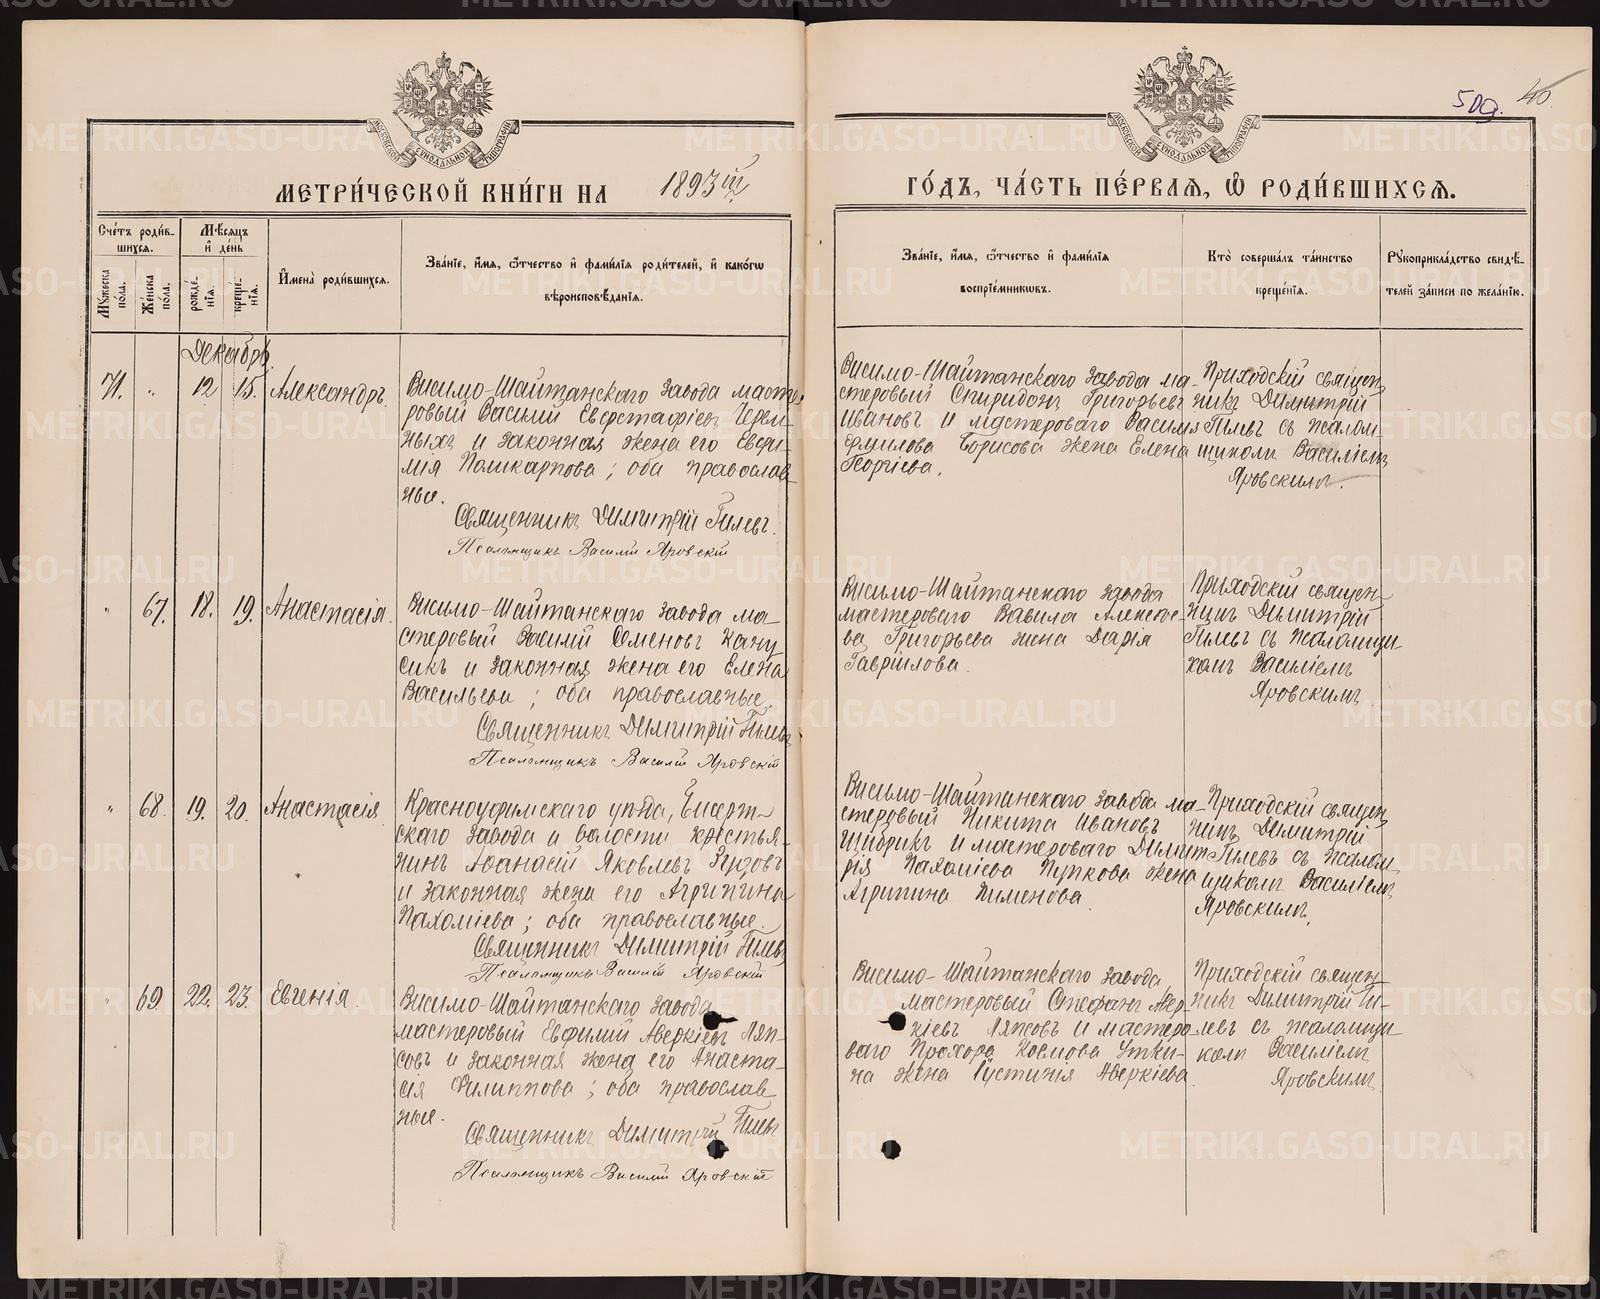 500. 40.
МОСКОВСКОЙ СѴНОДАЛЬНОЙ ТИПОГРАФІИ
МОСКОВСКОЙ СѴНОДАЛЬНОЙ ТИПОГРАФІИ
МЕТРИ́ЧЕСКОЙ КНИ́ГИ НА 1893ій
ГО́ДЪ, ЧА́СТЬ ПЕ́РВАЯ, Ѡ҆ РОДИ́ВШИХСЯ.
Сче́тъ роди́в-
шихся.
Мꙋ́жеска по́ла.
Же́нска по́ла.
Мѣ́сяцъ
и҆ де́нь
рожде́-
нія.
креще́-
нія.
И҆мена̀ роди́вшихся.
Зва́ніе, и҆́мя, ѻ҆́тчество и҆ фами́лія роди́телей, и҆ како́гѡ
вѣроисповѣ́данія.
Зва́ніе, и҆́мя, ѻ҆́тчество и҆ фами́лія
воспріе́мникѡвъ.
Кто̀ соверша́лъ та́инство
креще́нія.
Рꙋкоприкла́дство свидѣ́-
телей за́писи по жела́нію.
Декабрь
71. " 12 15. Александръ.
Висимо-Шайтанскаго завода масте-
ровый Василій Евстафіевъ Черем-
ныхъ и законная жена его Евфи-
мия Поликарпова; оба православ-
ные.
Священникъ Димитрій Гилевъ.
Псаломщикъ Василій Яровскій
Висимо-Шайтанскаго завода ма-
стеровый Спиридонъ Григорьевъ
Ивановъ и мастероваго Василія
Ермилова Борисова жена Елена
Георгіева.
Приходскій священ-
никъ Димитрій
Гилевъ съ псалом-
щикомъ Василіемъ
Яровскимъ.
" 67. 18. 19. Анастасія.
Висимо-Шайтанскаго завода ма-
стеровый Василій Семеновъ
и законная жена его Елена
Васильева; оба православные.
Священникъ Димитрій Гилевъ
Псаломщикъ Василій Яровскій
Висимо-Шайтанскаго завода
мастероваго Вавила Алексѣе-
ва Григорьева жена Дарія
Гавріилова.
Приходскій священ-
никъ Димитрій
Гилевъ съ псаломщи-
комъ Василіемъ
Яровскимъ
" 68. 19. 20. Анастасія
Красноуфимскаго уѣзда,
скаго завода и волости крестья-
нинъ Аѳанасій Яковлевъ
и законная жена его Агрипина
Пахоміева; оба православные.
Священникъ Димитрій Гилевъ
Псаломщикъ Василій Яровскій
Висимо-Шайтанскаго завода ма-
стеровый Никита Ивановъ
и мастероваго Димит-
рія Пахоміева Пупкова жена
Агрипина Пименова
Приходскій священ-
никъ Димитрій
Гилевъ съ псалом-
щикомъ Василіемъ
Яровскимъ.
" 69 22. 23. Евгенія.
Висимо-Шайтанскаго завода
мастеровый Евфимій Аверкіевъ Ляп-
совъ и законная жена его Анаста-
сія Филиппова; оба православ-
ные.
Священникъ Димитрій Гилевъ
Псаломщикъ Василій Яровскій
Висимо-Шайтанскаго завода
мастеровый Стефанъ Авер-
кіевъ Ляпсовъ и мастеро-
ваго Прохора Космова Утки-
на жена Іустинія Аверкіева
Приходскій священ-
никъ Димитрій Ги-
левъ съ псаломщи-
комъ Василіемъ
Яровскимъ
METRIKI.GASO-URAL.RU